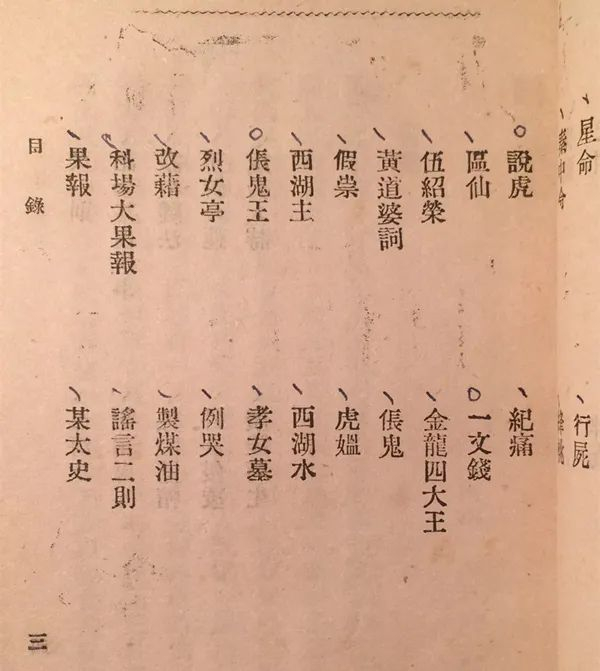 星命
行屍
說虎
紀痛
區仙
一文錢
伍紹榮
金龍四大王
黃道婆詞
倀鬼
假祟
虎媼
西湖主
西湖水
倀鬼王
孝女墓
烈女亭
例哭
改藉
製煤油
科場大果報
謠言二則
果報
某太史
目錄
三